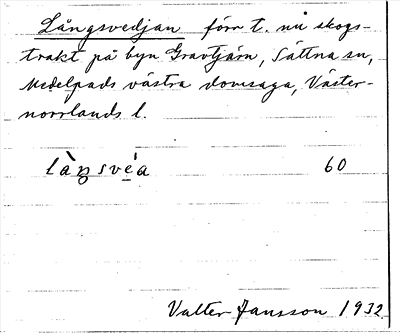 Långsvedjan förr t. nu skogs-
trakt på byn Gravtjärn, Sättna sn,
Medelpads västra domsaga, Väster-
norrlands l.
làŋsvé̲a 60
Valter Jansson 1932.